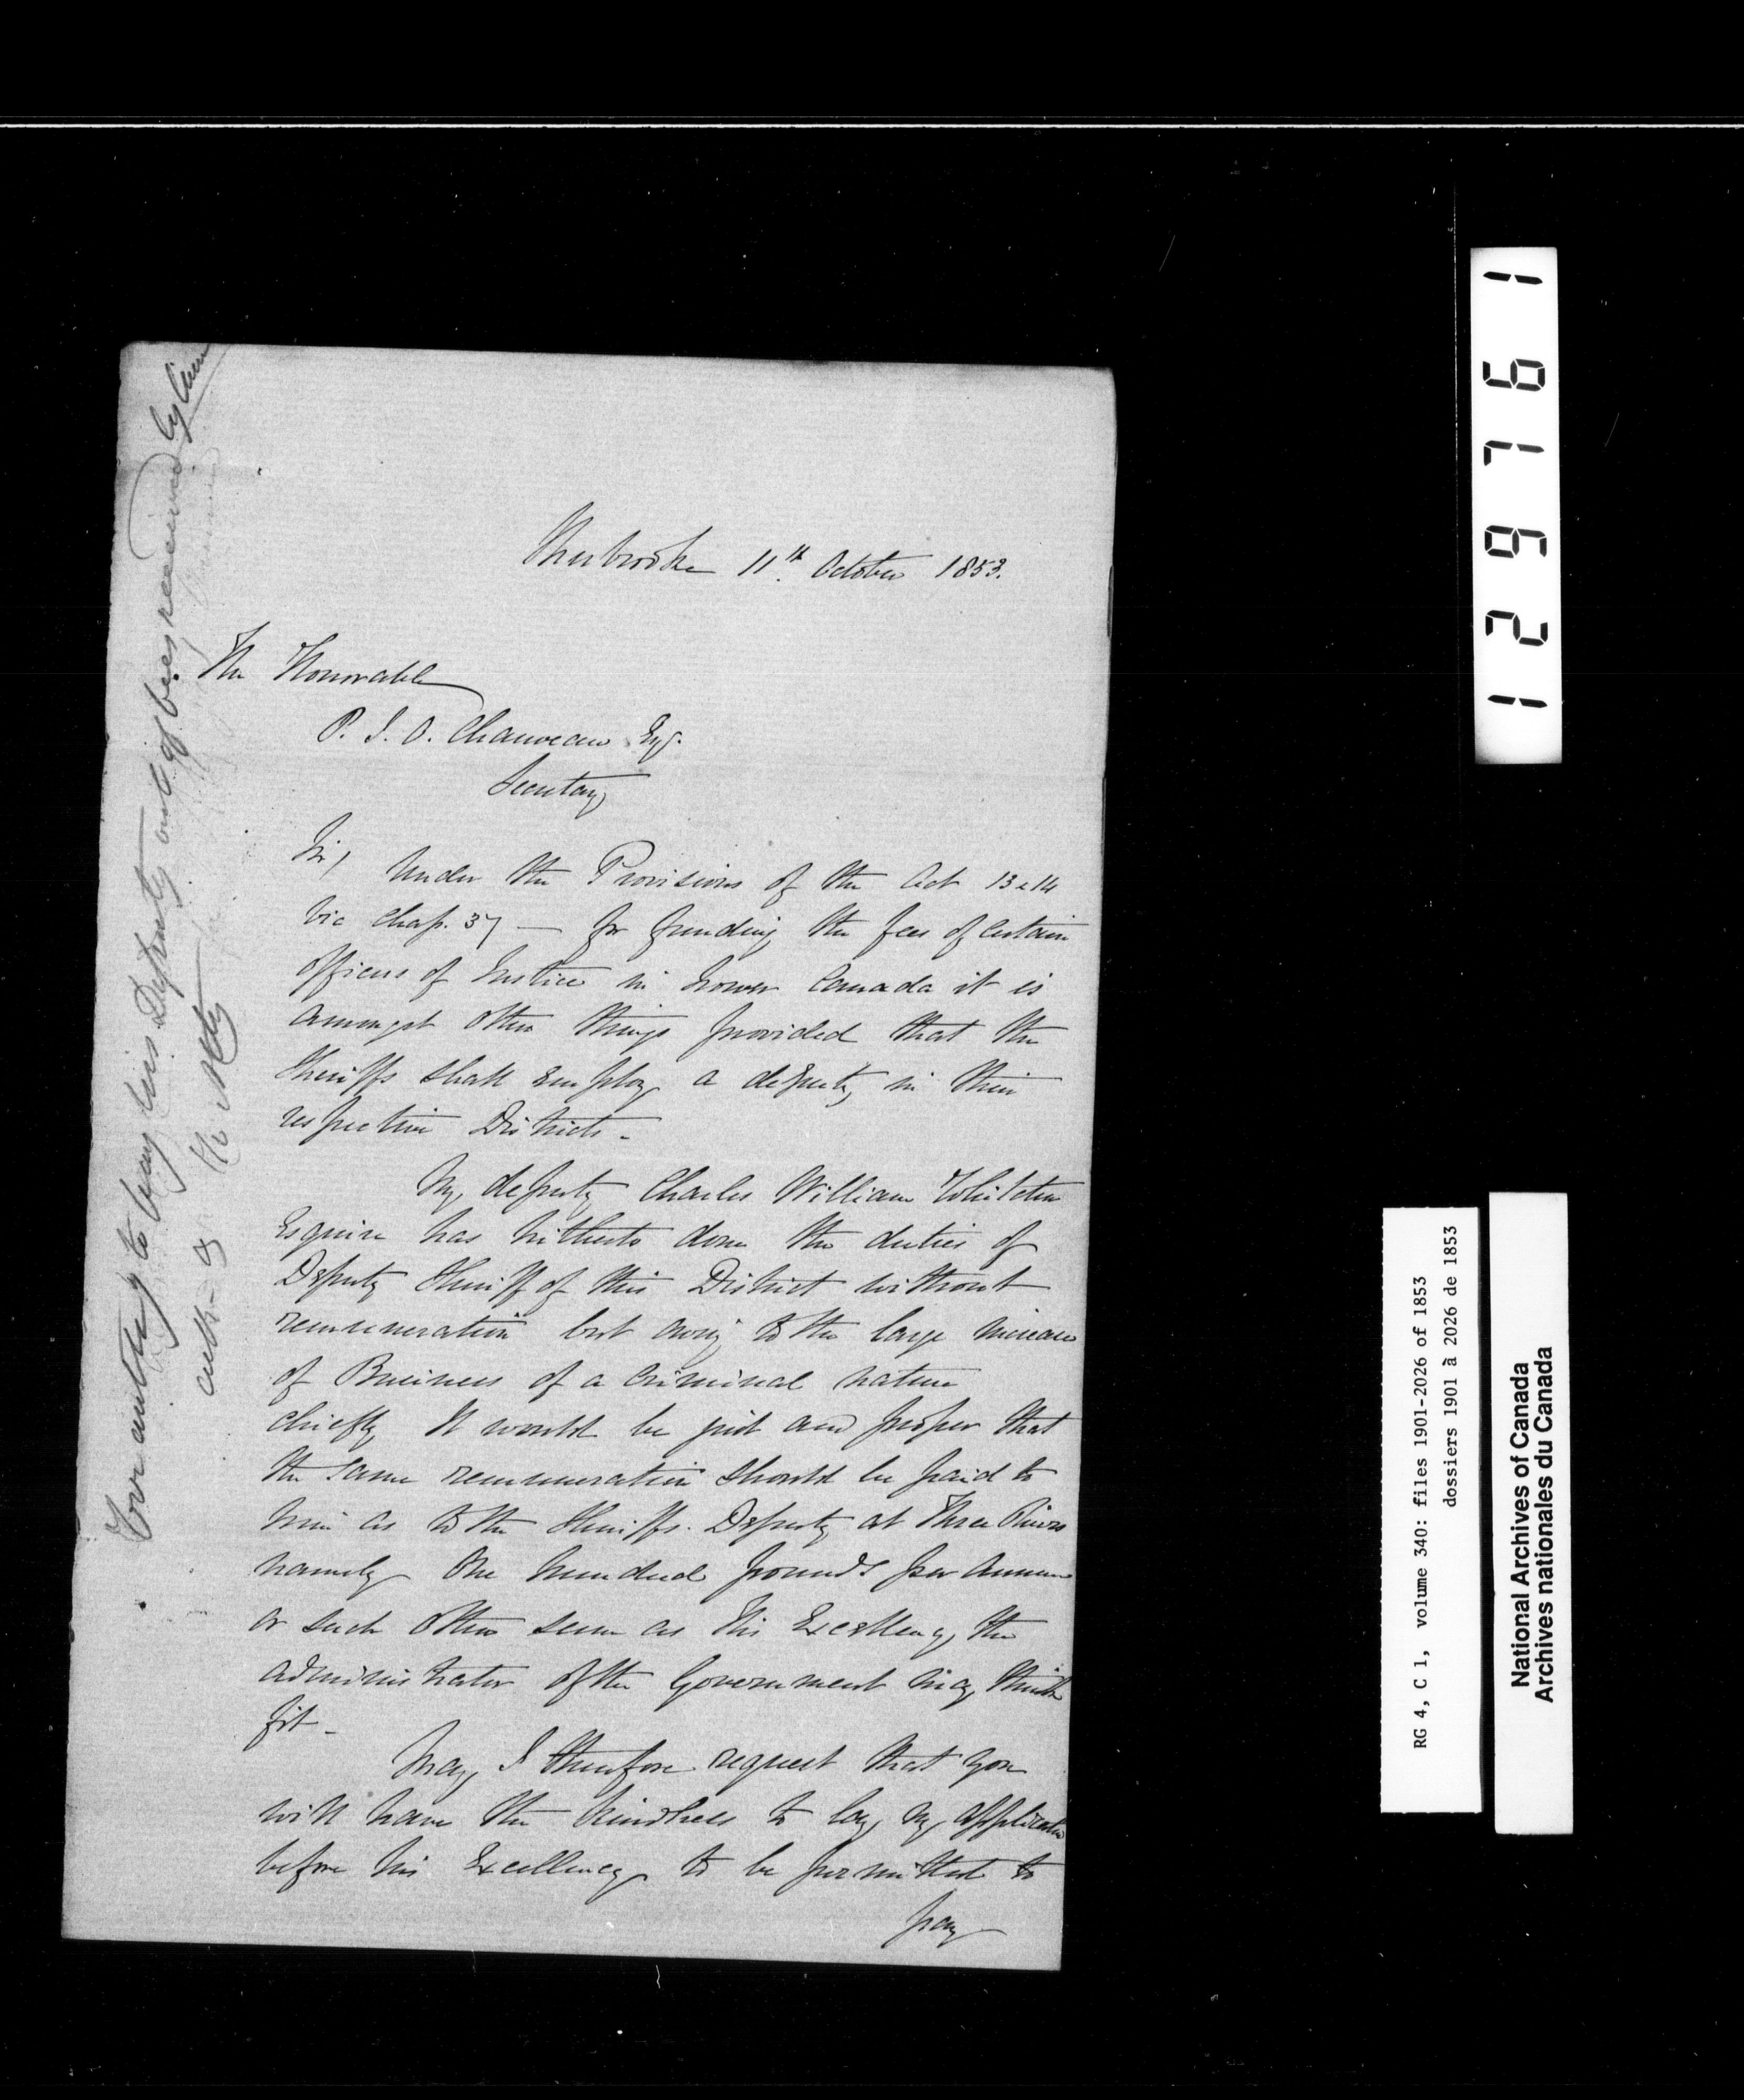 Sherbrooke 11th October 1853.
The Honorable
P. J. O. Chauveau Esq.
Secretary
Sir,
Under the Provisions of the Act 13 & 14
Vic Chap. 37 — for funding the fees of certain
officers of Justice in Lower Canada it is
amongst other things provided that the
Sheriffs shall employ a deputy in their
respective Districts -
My deputy Charles William Whitcher
Esquire has hitherto done the duties of
Deputy Sheriff of this District without
remuneration but owing to the large increase
of Business of a Criminal nature
chiefly It would be just and proper that
the same remuneration should be paid to
him as to the Sheriffs Deputy at Three Rivers
namely One hundred pounds per annum
or such other sum as His Excellency the
administrator of the Government may think
fit -
May I therefore request that you
will have the kindness to lay my application
before his Excellency to be permitted to
pay
For authy to pay his Deputy out of fees received by him
1 2 9 6 7 6 1
RG 4, C 1, volume 340: files 1901-2026 of 1853
dossiers 1901 à 2026 de 1853
National Archives of Canada
Archives nationales du Canada